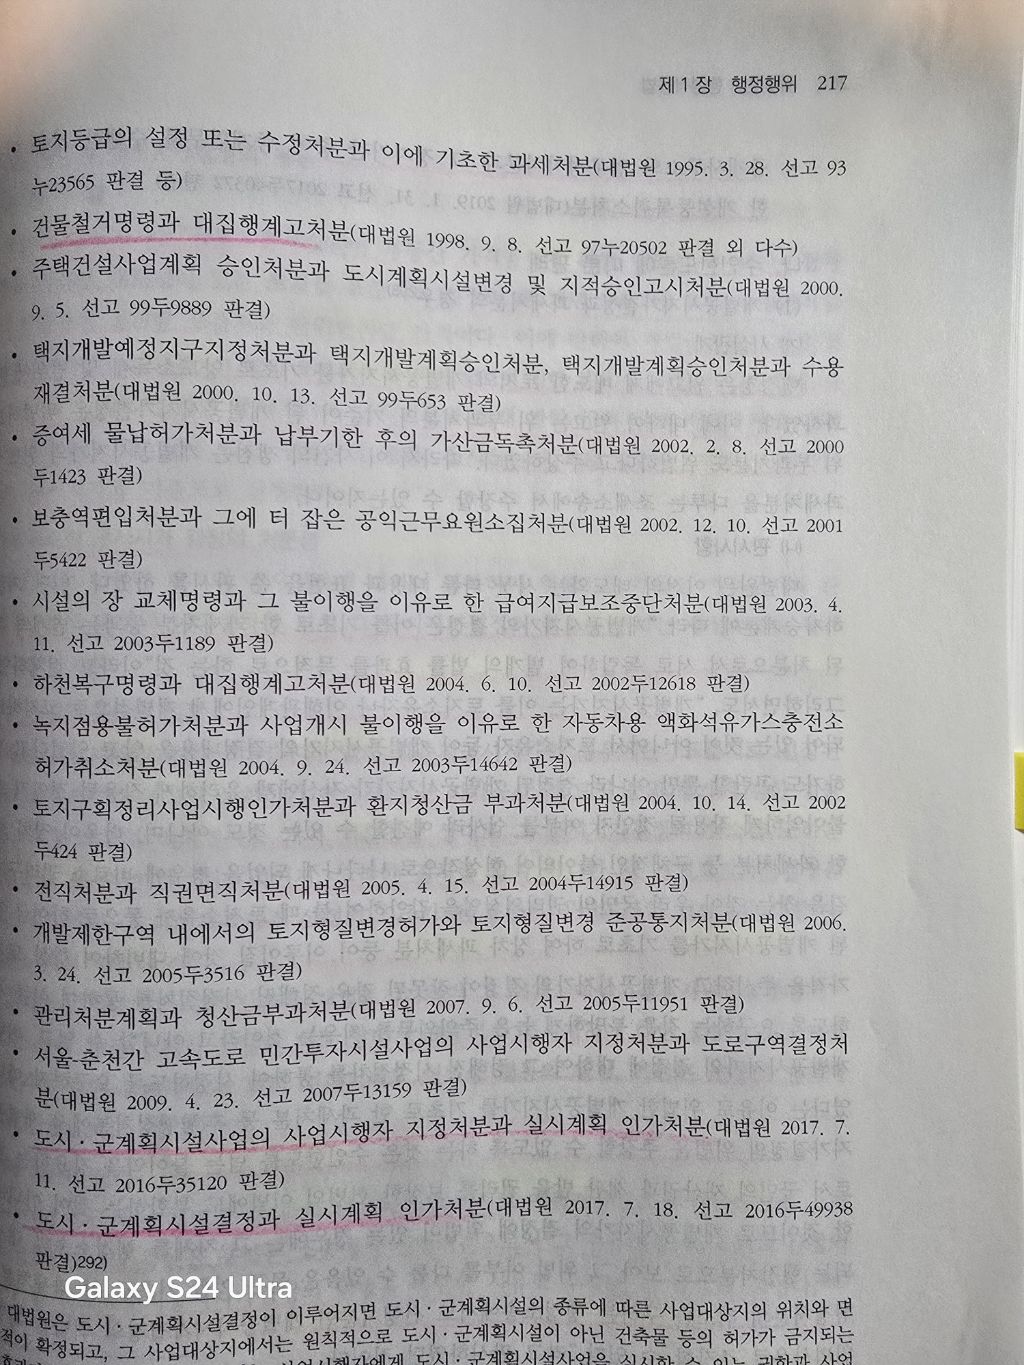 제 1 장 행정행위 217
• 토지등급의 설정 또는 수정처분과 이에 기초한 과세처분(대법원 1995. 3. 28. 선고 93
누23565 판결 등)
• 건물철거명령과 대집행계고처분(대법원 1998. 9. 8. 선고 97누20502 판결 외 다수)
• 주택건설사업계획 승인처분과 도시계획시설변경 및 지적승인고시처분(대법원 2000.
9. 5. 선고 99두9889 판결)
• 택지개발예정지구지정처분과 택지개발계획승인처분, 택지개발계획승인처분과 수용
재결처분(대법원 2000. 10. 13. 선고 99두653 판결)
• 증여세 물납허가처분과 납부기한 후의 가산금독촉처분(대법원 2002. 2. 8. 선고 2000
두1423 판결)
• 보충역편입처분과 그에 터 잡은 공익근무요원소집처분(대법원 2002. 12. 10. 선고 2001
두5422 판결)
• 시설의 장 교체명령과 그 불이행을 이유로 한 급여지급보조중단처분(대법원 2003. 4.
11. 선고 2003두1189 판결)
• 하천복구명령과 대집행계고처분(대법원 2004. 6. 10. 선고 2002두12618 판결)
• 녹지점용불허가처분과 사업개시 불이행을 이유로 한 자동차용 액화석유가스충전소
허가취소처분(대법원 2004. 9. 24. 선고 2003두14642 판결)
• 토지구획정리사업시행인가처분과 환지청산금 부과처분(대법원 2004. 10. 14. 선고 2002
두424 판결)
• 전직처분과 직권면직처분(대법원 2005. 4. 15. 선고 2004두14915 판결)
• 개발제한구역 내에서의 토지형질변경허가와 토지형질변경 준공통지처분(대법원 2006.
3. 24. 선고 2005두3516 판결)
• 관리처분계획과 청산금부과처분(대법원 2007. 9. 6. 선고 2005두11951 판결)
• 서울-춘천간 고속도로 민간투자시설사업의 사업시행자 지정처분과 도로구역결정처
분(대법원 2009. 4. 23. 선고 2007두13159 판결)
• 도시·군계획시설사업의 사업시행자 지정처분과 실시계획 인가처분(대법원 2017. 7.
11. 선고 2016두35120 판결)
• 도시·군계획시설결정과 실시계획 인가처분(대법원 2017. 7. 18. 선고 2016두49938
판결)292)
Galaxy S24 Ultra
대법원은 도시·군계획시설결정이 이루어지면 도시·군계획시설의 종류에 따른 사업대상지의 위치와 면
적이 확정되고, 그 사업대상지에서는 원칙적으로 도시·군계획시설이 아닌 건축물 등의 허가가 금지되는
사업시행자에게 도시·군계획시설사업을 실시할 수 있는 권한과 사업